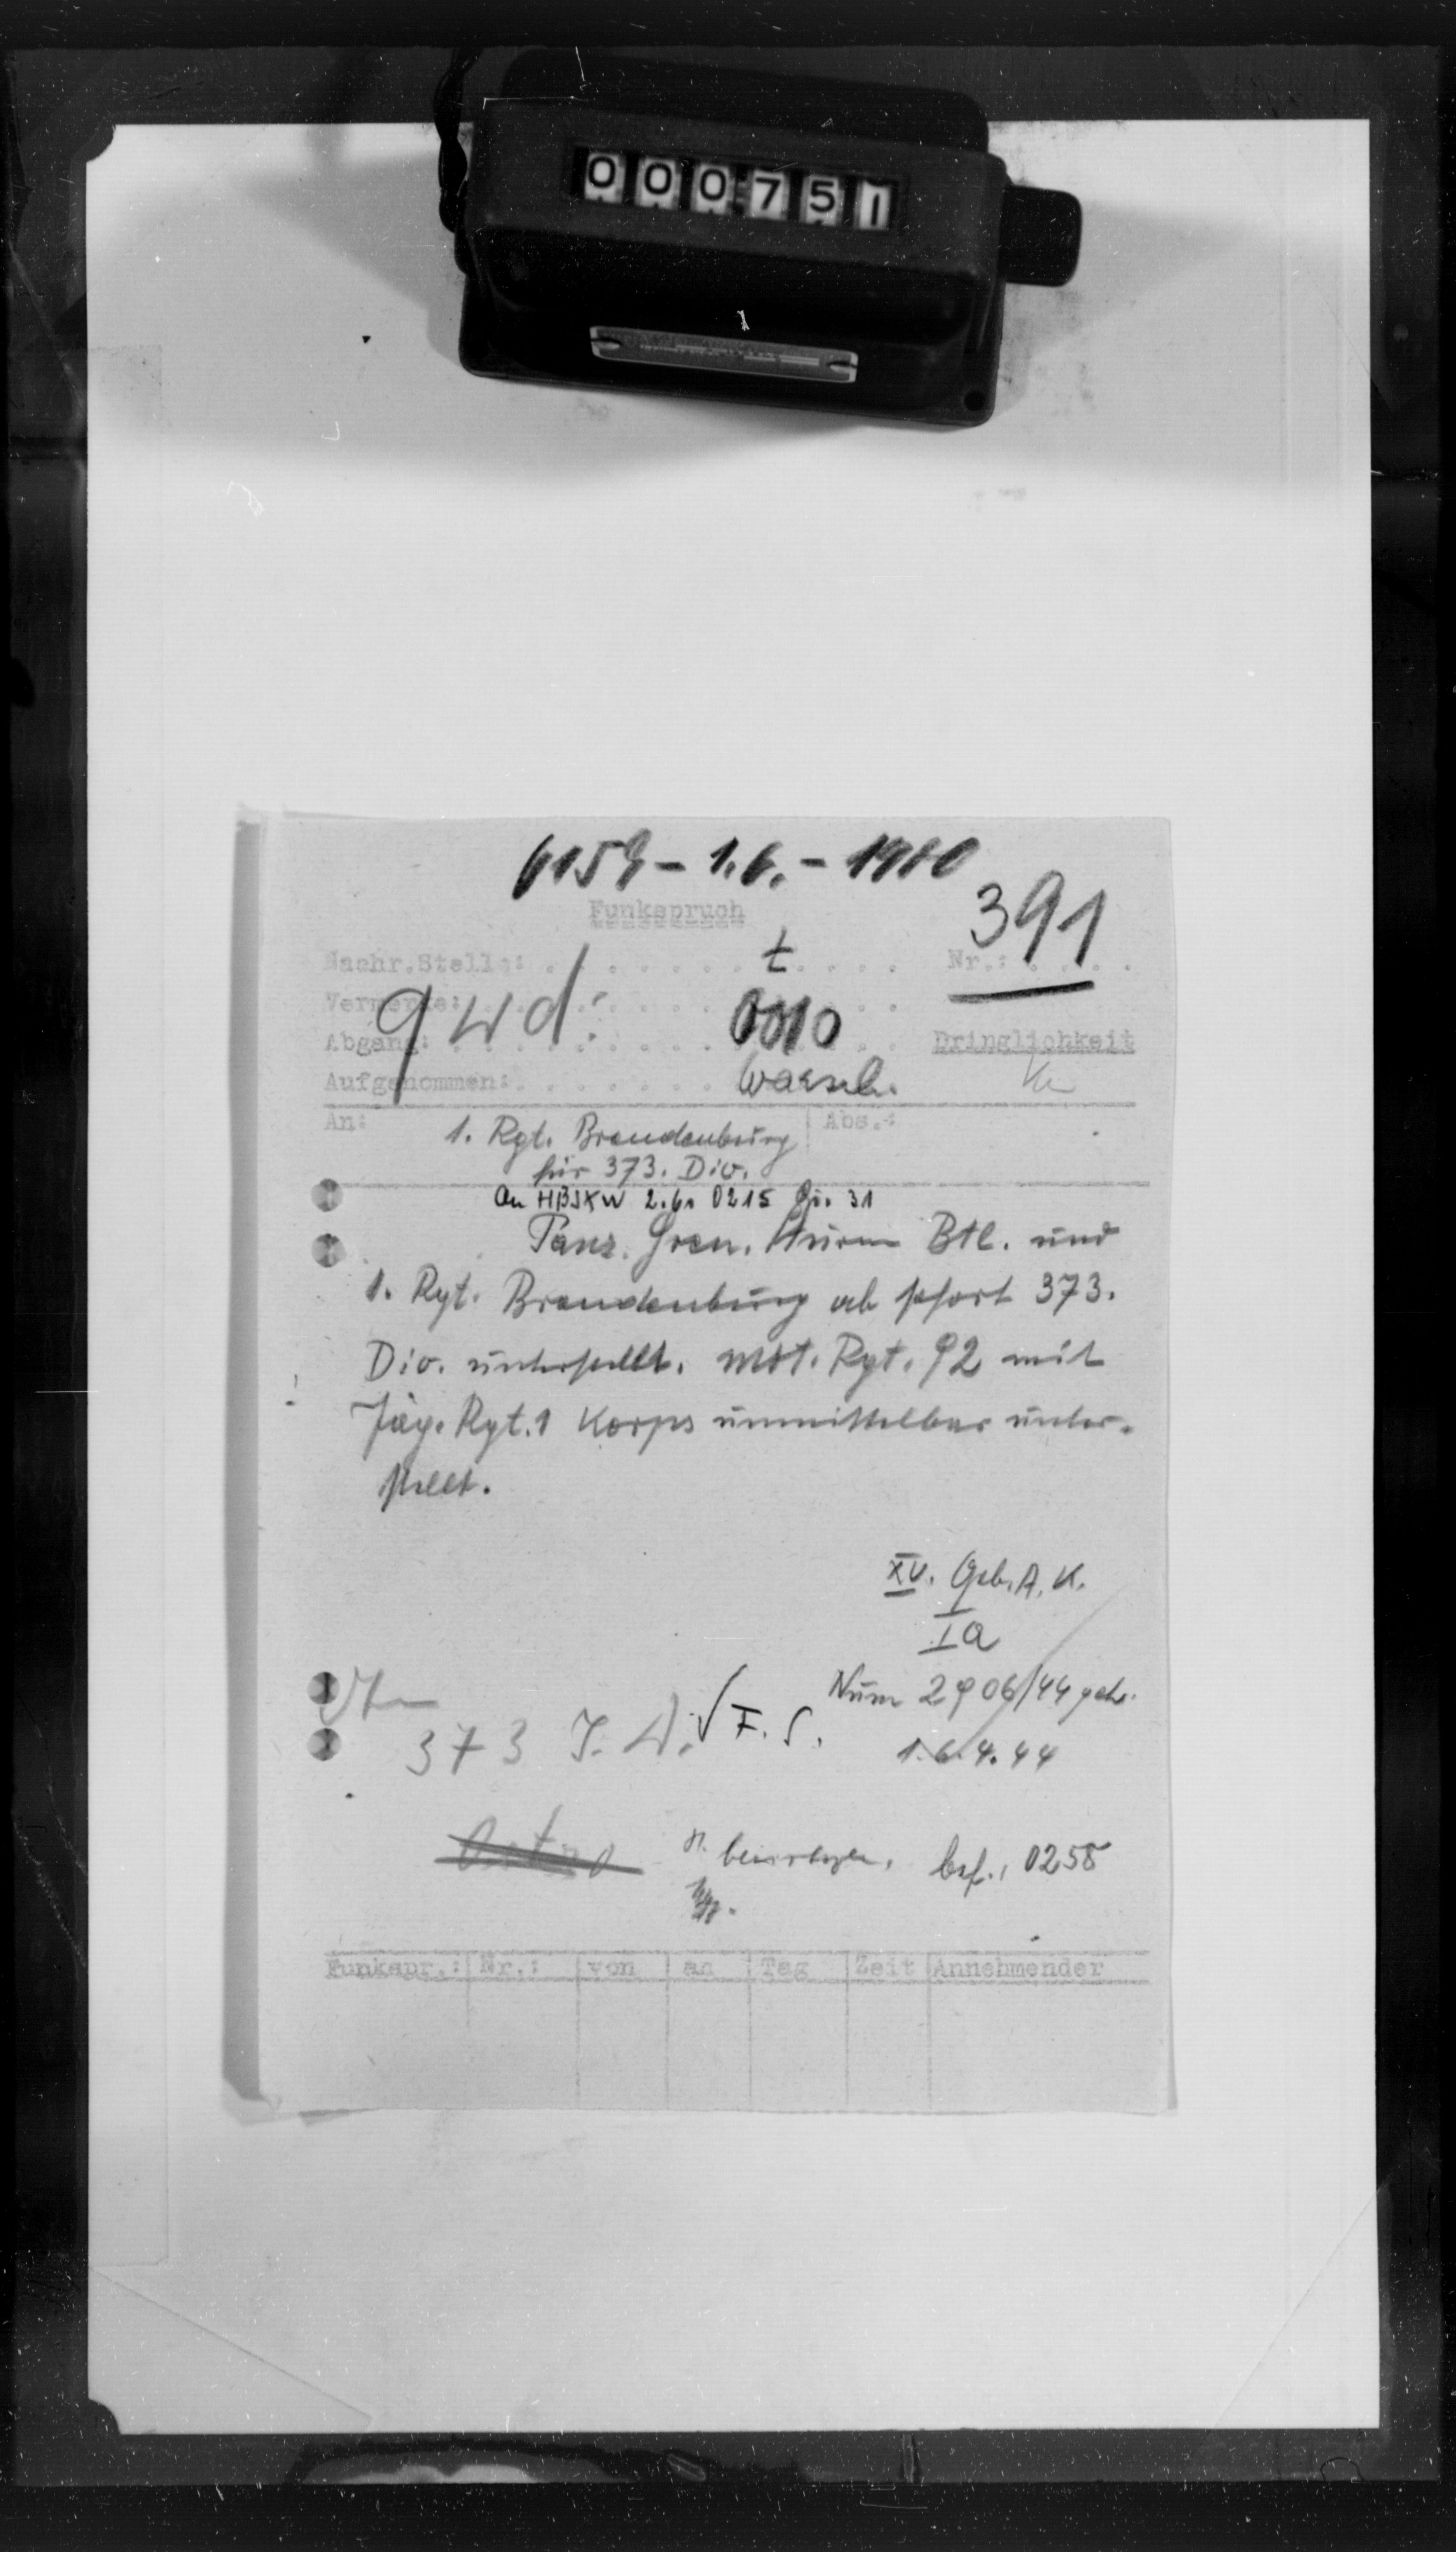 000751
6159 - 1.6. - 1910
Funkspruch
391
Nachr.Stelle: t Nr.:
Vermerke: qwd: 0010
Abgang: Dringlichkeit
Aufgenommen: Kr
An: 1. Rgt. Brandenburg Abs.:
für 373. Div.
An HBJXW 2.6. 0215 31
Panz. Gren. Sturm Btl. und
1. Rgt. Brandenburg ab sofort 373.
Div. unterstellt. mot. Rgt. 92 mit
Jäg. Rgt. 1 Korps unmittelbar unter-
stellt.
XV. Geb. A. K.
Ia
Num 2906/44 geh.
373 I. D. √ F. S.
1.6.4.44
bef., 0258
Funkspr.: Nr.: von an Tag Zeit Annehmender